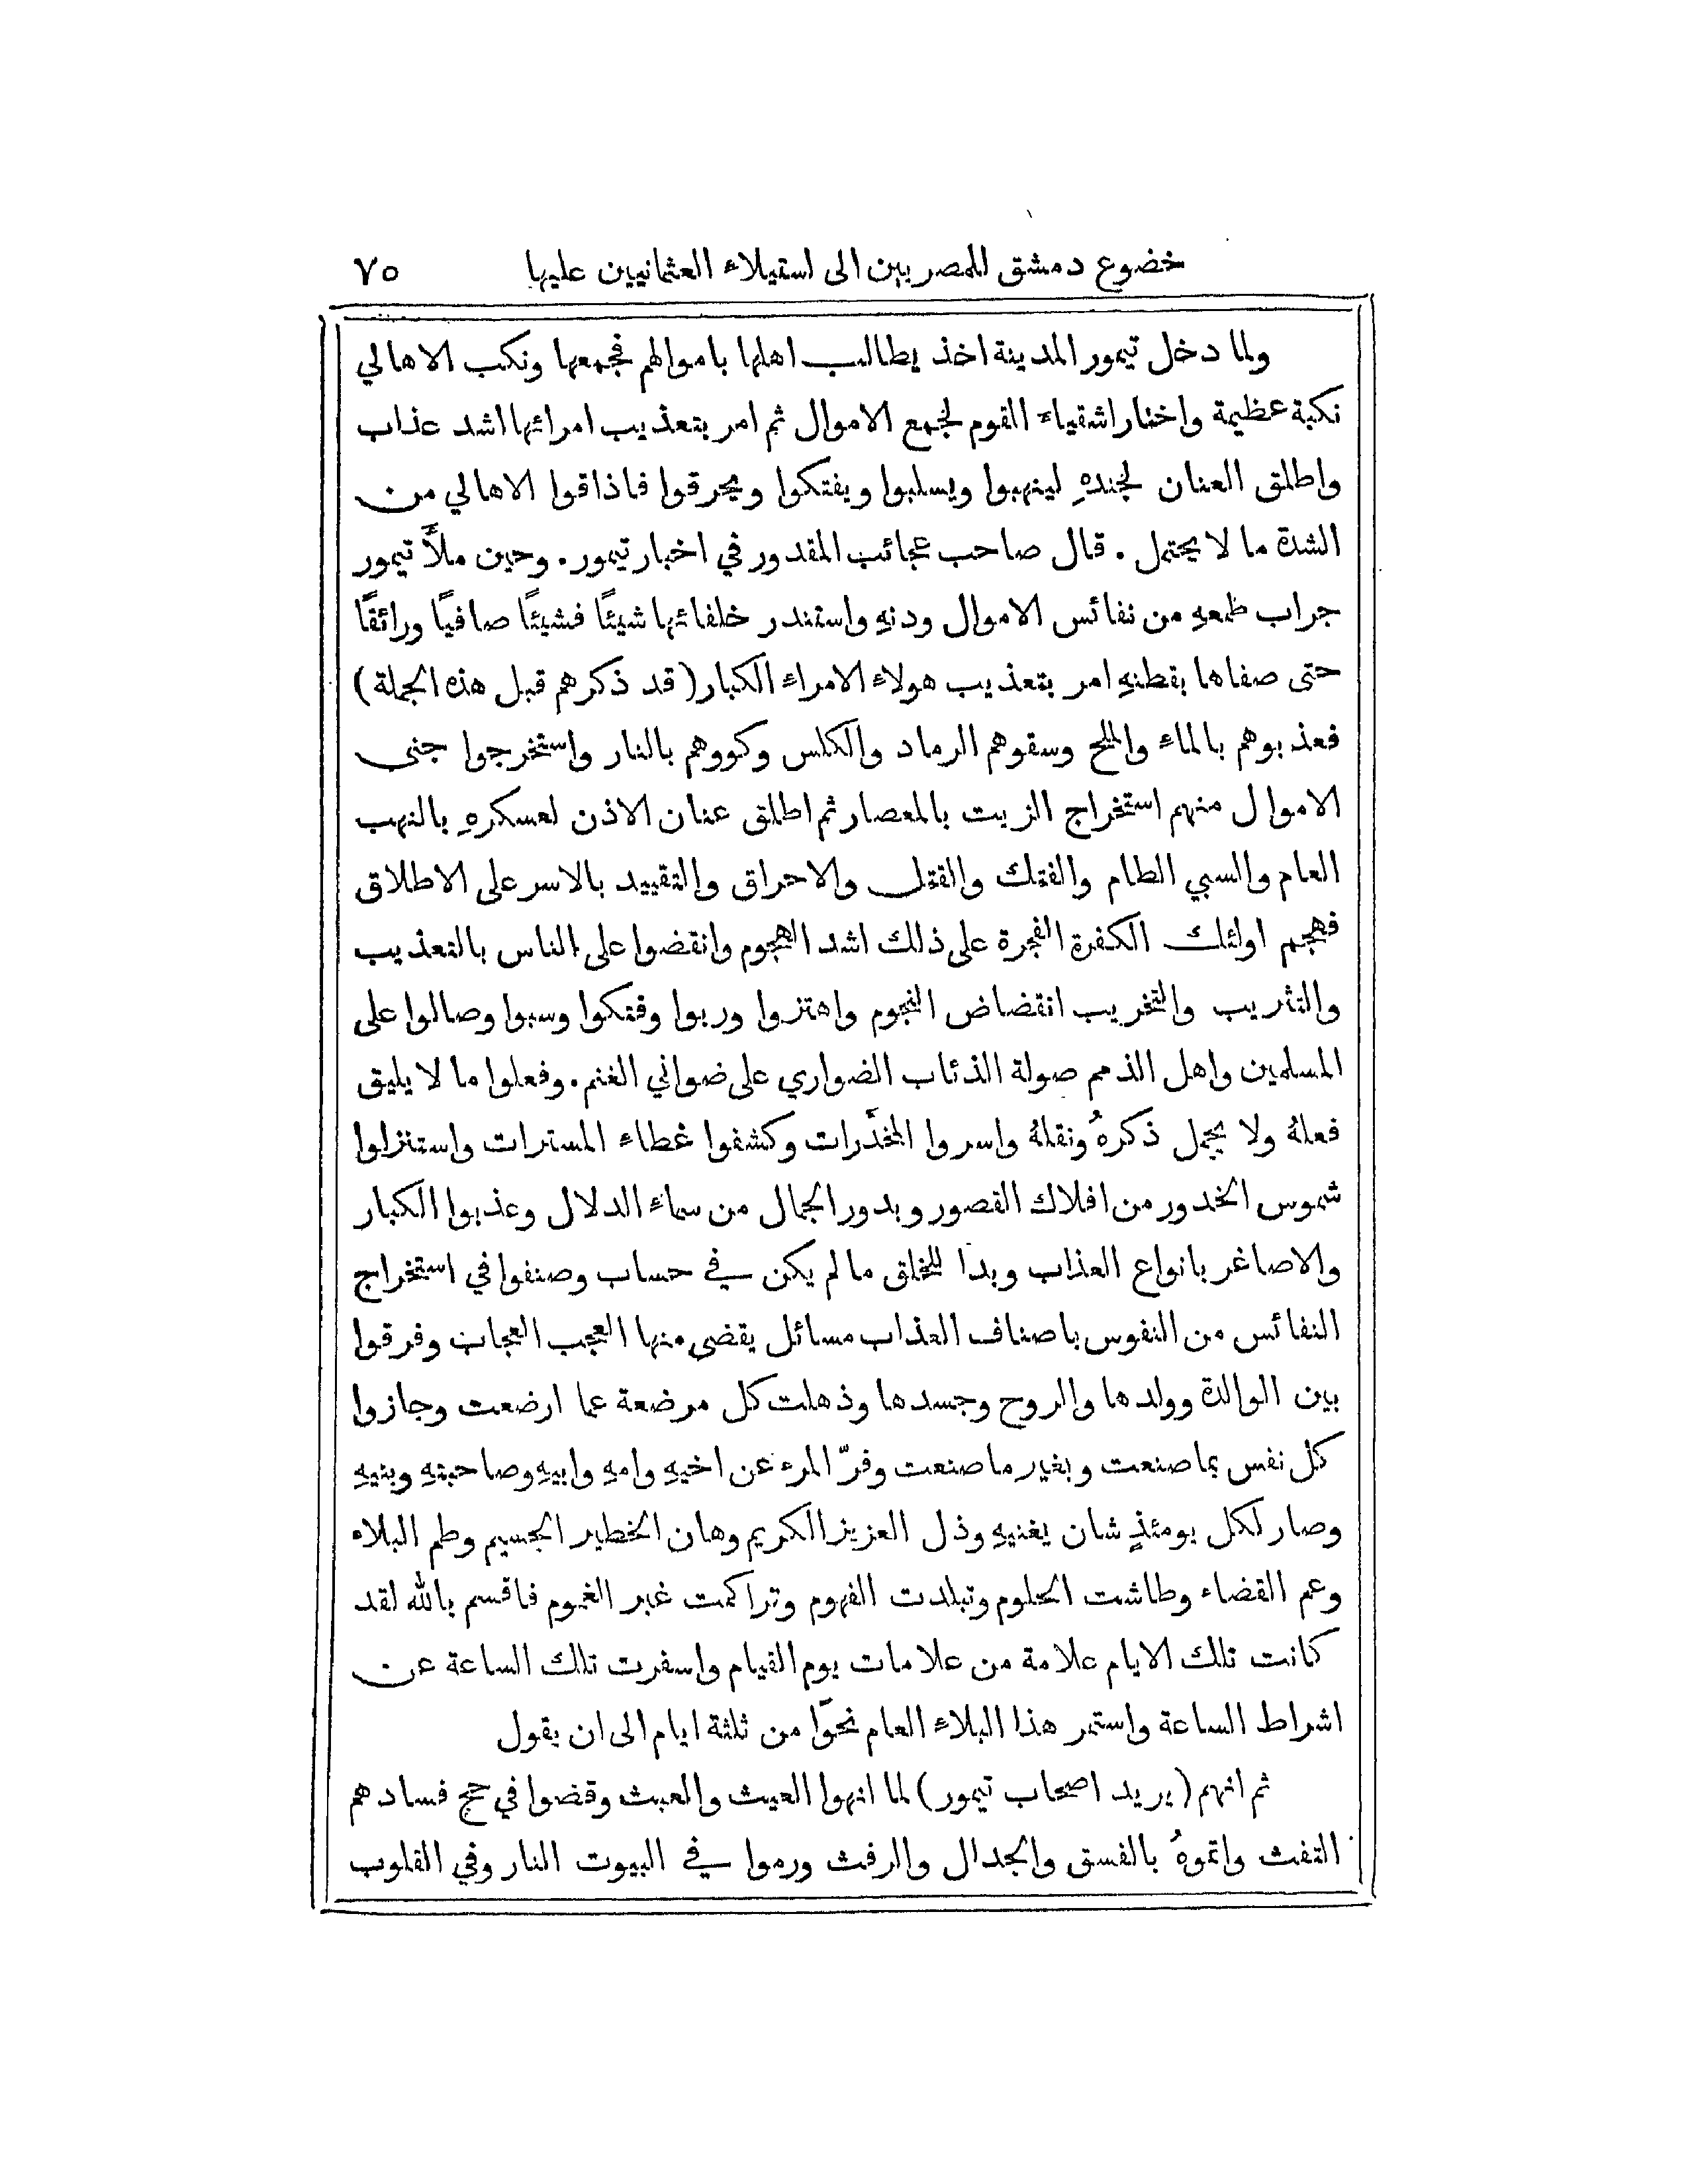 خضوع دمشق للمصريين الى استيلاء العثمانيين عليها ٧٥
ولما دخل تيمور المدينة اخذ يطالب اهلها باموالهم فجمعها ونكب الاهالي
نكبة عظيمة واختار اشقياء القوم لجمع الاموال ثم امر بتعذيب امرائها اشد عذاب
واطلق العنان لجندهِ لينهبوا ويسلبوا ويفتكوا ويحرقوا فاذاقوا الاهالي من
الشدة ما لا يحتمل . قال صاحب عجائب المقدور في اخبار تيمور . وحين ملأَ تيمور
جراب طمعهِ من نفائس الاموال ودنهِ واستندر خلفائها شيئًا فشيئًا صافيًا ورائقًا
حتى صفاها بقطنهِ امر بتعذيب هولاء الامراء الكبار (قد ذكرهم قبل هذه الجملة)
فعذبوهم بالماء والملح وسقوهم الرماد والكلس وكووهم بالنار واستخرجوا جنى
الاموال منهم استخراج الزيت بالمعصار ثم اطلق عنان الاذن لعسكرهِ بالنهب
العام والسبي الطام والفتك والقتل والاحراق والتقييد بالاسر على الاطلاق
فهجم اولئك الكفرة الفجرة على ذلك اشد الهجوم وانقضوا على الناس بالتعذيب
والتثريب والتخريب انقضاض النجوم واهتزوا وربوا وفتكوا وسبوا وصالوا على
المسلمين واهل الذمم صولة الذئاب الضواري على ضواني الغنم . وفعلوا ما لا يليق
فعلهُ ولا يجمل ذكرهُ ونقلهُ واسروا المخدَّرات وكشفوا غطاء المسترات واستنزلوا
شموس الخدور من افلاك القصور وبدور الجمال من سماء الدلال وعذبوا الكبار
والاصاغر بانواع العذاب وبدا للخلق ما لم يكن في حساب وصنفوا في استخراج
النفائس من النفوس باصناف العذاب مسائل يقضى منها العجب العجاب وفرقوا
بين الوالدة وولدها والروح وجسدها وذهلت كل مرضعة عما ارضعت وجازوا
كل نفس بما صنعت وبغير ما صنعت وفرّ المرء عن اخيهِ وامهِ وابيهِ وصاحبتهِ وبنيهِ
وصار لكل يومئذٍ شان يغنيهِ وذل العزيز الكريم وهان الخطير الجسيم وطم البلاء
وعم القضاء وطاشت الحلوم وتبلدت الفهوم وتراكمت غبر الغموم فاقسم بالله لقد
كانت تلك الايام علامة من علامات يوم القيام واسفرت تلك الساعة عن
اشراط الساعة واستمر هذا البلاء العام نحوًا من ثلثة ايام الى ان يقول
ثم انهم (يريد اصحاب تيمور) لما انهوا العيث والعبث وقضوا في حج فسادهم
التفث واتموهُ بالفسق والجدال والرفث ورموا في البيوت النار وفي القلوب